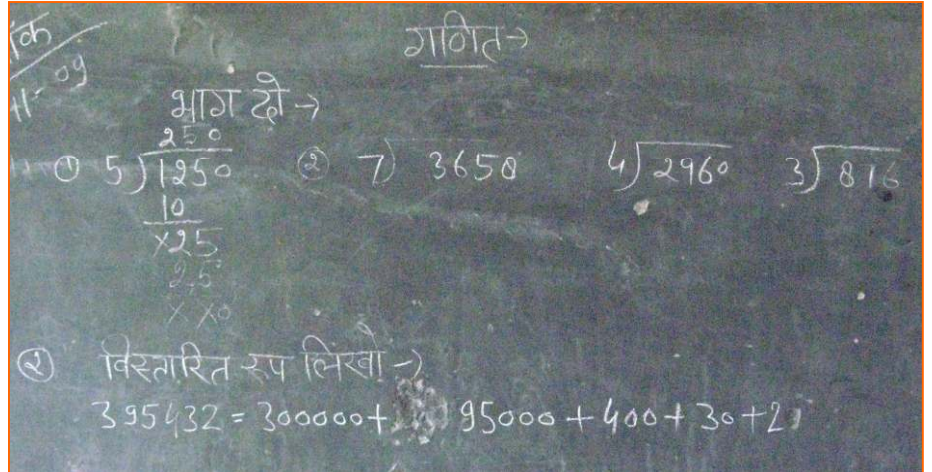 गणित→
11-09
भाग दो→
250
① 5)1250 ② 7) 3650 4)2960 3)816
10
x25
25
xx0
② विस्तारित रूप लिखो→
395432 = 300000+ 95000+400+30+2